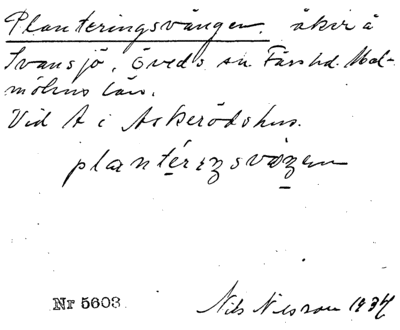 Planteringsvången, åker å
Svansjö, Öveds sn Färs hd. Mal-
möhus län.
Vid A i Askerödshus.
planteriŋsvåŋen
Nr 5603
Nils Nilsson 1934